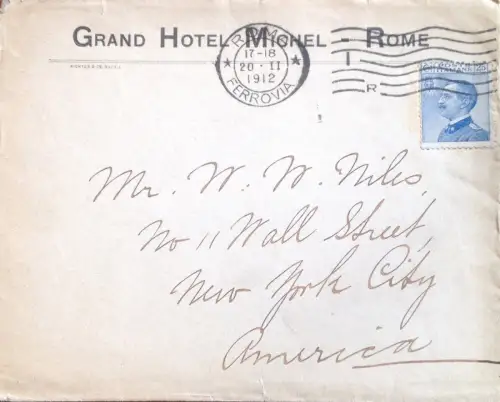 GRAND HOTEL MICHEL - ROME
ROMA
17-18
20·II
1912
FERROVIA
I
R
Mr. W. W. Niles,
No 11 Wall Street,
New York City
America